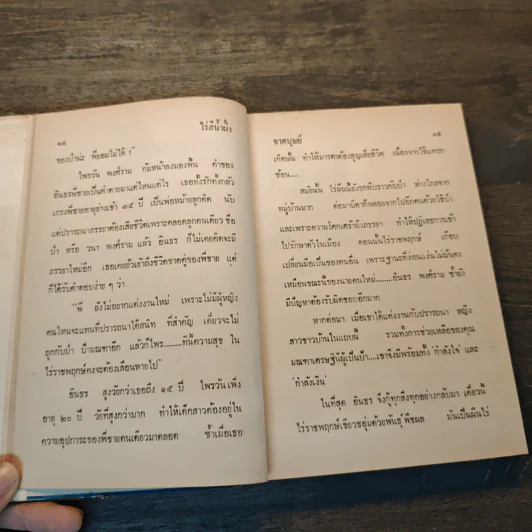 ๑๔
ไร่สีน้ำผึ้ง
ของป้าน่ะ พี่ยอมไม่ได้ !”
ไพรวัน พงศ์ราม ก้มหน้าลงมองพื้น คำของ
อินธรพี่ชายเป็นคำตายมาแต่ไหนแต่ไร เธอทั้งรักทั้งกลัว
เกรงพี่ชายอายุย่างเข้า ๓๕ ปี เป็นพ่อหม้ายลูกติด นับ
แต่ปรารถนาภรรยาต้องเสียชีวิตเพราะคลอดลูกคนเดียว ชื่อ
ป้า หรือ วนา พงศ์ราม แล้ว อินธร ก็ไม่เคยคิดจะมี
ภรรยาใหม่อีก เธอเคยยั่วเย้าถึงชีวิตขาดคู่ของพี่ชาย แต่
ก็ได้รับคำตอบง่าย ๆ ว่า
“พี่ ยังไม่อยากแต่งงานใหม่ เพราะไม่มีผู้หญิง
คนไหนจะแทนที่ปรารถนาได้สนิท ที่สำคัญ เดี๋ยวจะไม่
ถูกกับป้า บ้านแตกอีก แล้วก็ไพร.....ทีนี้ความสุข ใน
ไร่ราชพฤกษ์คงจะคอยเลือนหายไป”
อินธร สูงวัยกว่าเธอถึง ๑๕ ปี ไพรวันเพิ่ง
อายุ ๒๐ ปี วัยที่สูงกว่ามาก ทำให้เด็กสาวต้องอยู่ใน
ความอุปการะของพี่ชายคนเดียวมาตลอด ซ้ำเมื่อเธอ
ชาคบุษย์
๑๕
เกิดนั้น ทำให้มารดาต้องสูญเสียชีวิต เนื่องจากโรคแทรก
ซ้อน....
สมัยนั้น ไร่ผืนนี้ยังรกทึบราวกับป่า ห่างไกลจาก
หมู่บ้านมาก ต่อมาบิดาก็พลอยจากไปอีกคนด้วยไข้ป่า
และเพราะความโศกเศร้าถึงภรรยา ทำให้ปฏิเสธการเข้า
ไปรักษาตัวในเมือง ตอนนั้นไร่ราชพฤกษ์ เกือบ
เปลี่ยนมือเป็นของคนอื่น เพราะฐานะที่ง่อนแง่นไม่มั่นคง
เหมือนขณะนี้ของนายคนใหม่......อินธร พงศ์ราม ซ้ำยัง
มีปัญหาต้องรับผิดชอบอีกมาก
หากต่อมา เมื่อเขาได้แต่งงานกับปรารถนา หญิง
สาวชาวบ้านในแถบนี้ รวมทั้งการช่วยเหลือของคุณ
มณฑาเศรษฐินีผู้เป็นป้า....เขาจึงมีพร้อมทั้ง ‘กำลังใจ’ และ
‘กำลังเงิน’
ในที่สุด อินธร จึงกู้ทุกสิ่งทุกอย่างกลับมา เดี๋ยวนี้
ไร่ราชพฤกษ์เขียวชอุ่มด้วยพันธุ์พืชผล มันเป็นผืนไร่